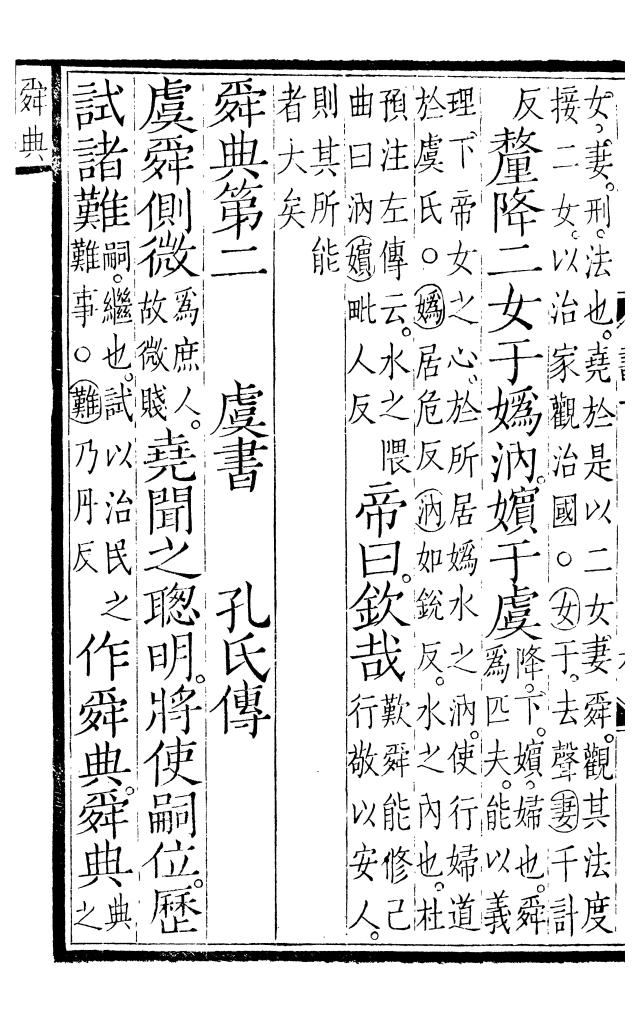 女。妻。刑。法也。堯於是以二女妻舜。觀其法度
接二女。以治家觀治國○女于。去聲妻千計
反釐降二女于嬀汭。嬪于虞降。下。嬪。婦也。舜爲匹夫。能以義
理。下帝女之心。於所居嬀水之汭。使行婦道
於虞氏。○嬀居危反汭如銳反。水之內也。杜
預注左傳云。水之隈曲曰汭嬪毗人反帝曰。欽哉歎舜能修己行敬以安人。
則其所能
者大矣
舜典第二 虞書 孔氏傳
虞舜側微爲庶人。故微賤堯聞之聰明。將使嗣位。歷
試諸難嗣。繼也。試以治民之難事。○難乃丹反作舜典。舜典典之
舜典